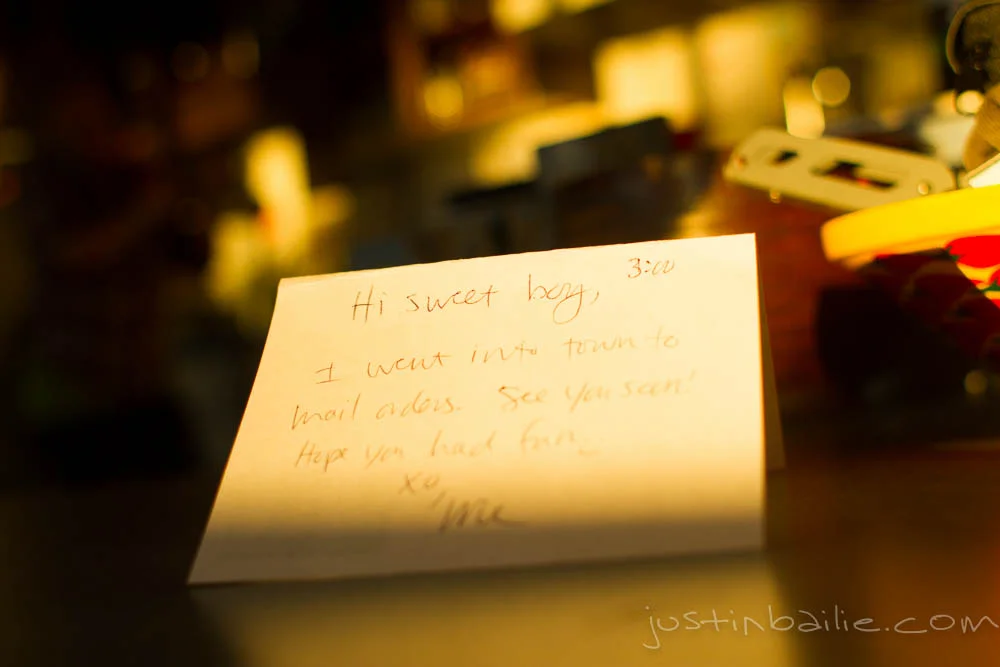 3:00
Hi sweet boy,
I went into town to
mail orders. See you soon!
Hope you had fun
xo,
Me
justinbailie.com